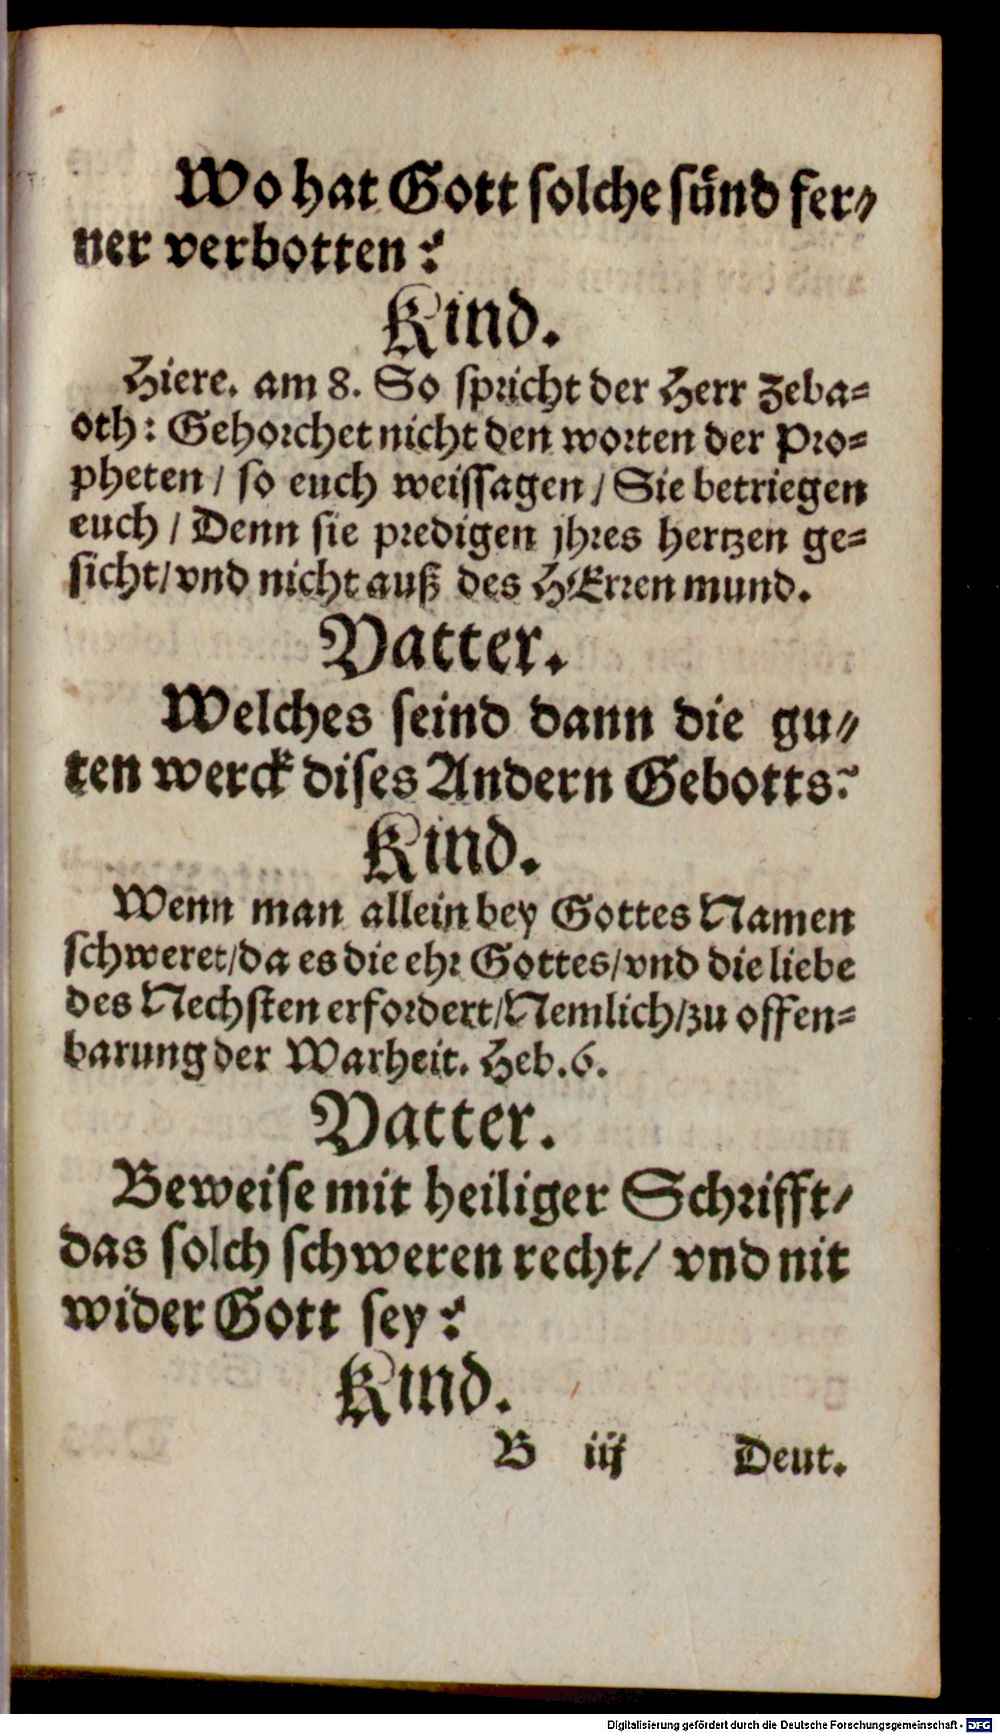 Wo hat Gott solche sünd fer⸗
ner verbotten?
Kind.
Hiere. am 8. So spricht der Herr Zeba⸗
oth: Gehorchet nicht den worten der Pro⸗
pheten / so euch weissagen / Sie betriegen
euch / Denn sie predigen jhres hertzen ge⸗
sicht / vnd nicht auß des HErren mund.
Vatter.
Welches seind dann die gu⸗
ten werck dises Andern Gebotts?
Kind.
Wenn man allein bey Gottes Namen
schweret / da es die ehr Gottes / vnd die liebe
des Nechsten erfordert / Nemlich / zu offen⸗
barung der Warheit. Heb. 6.
Vatter.
Beweise mit heiliger Schrifft /
das solch schweren recht / vnd nit
wider Gott sey?
Kind.
B iij Deut.
Digitalisierung gefördert durch die Deutsche Forschungsgemeinschaft - DFG